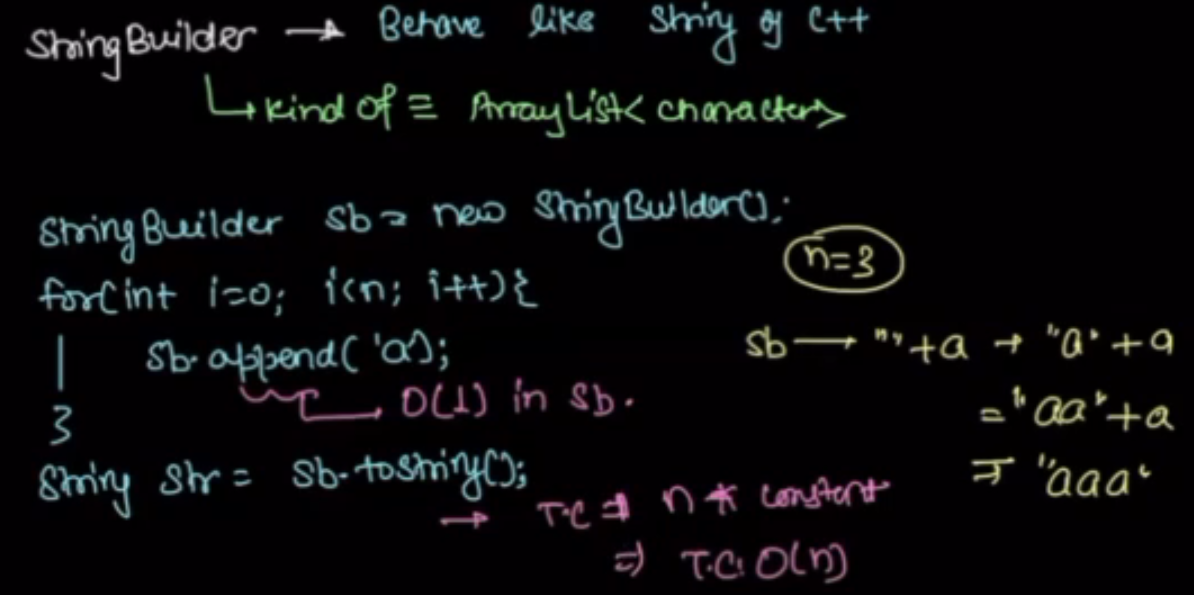 StringBuilder → Behave like String of C++
↳ kind of ≡ ArrayList<characters>
StringBuilder sb = new StringBuilder();
n=3
for(int i=0; i<n; i++){
sb.append('a');
sb → "" + a → "a" + a
O(1) in sb.
= "aa" + a
}
String str = sb.toString();
⇒ "aaa"
→ T.C ⇒ n * constant
⇒ T.C: O(n)